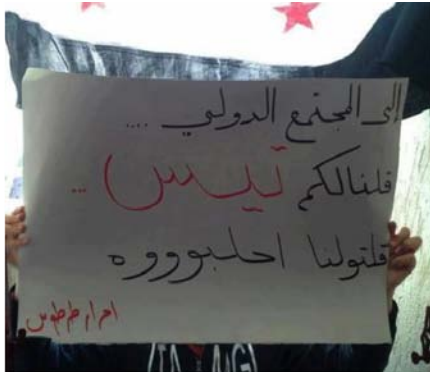 إلى المجتمع الدولي ....
قلنالكم تيس ..
قلتولنا احلبوووه
احرار طرطوس